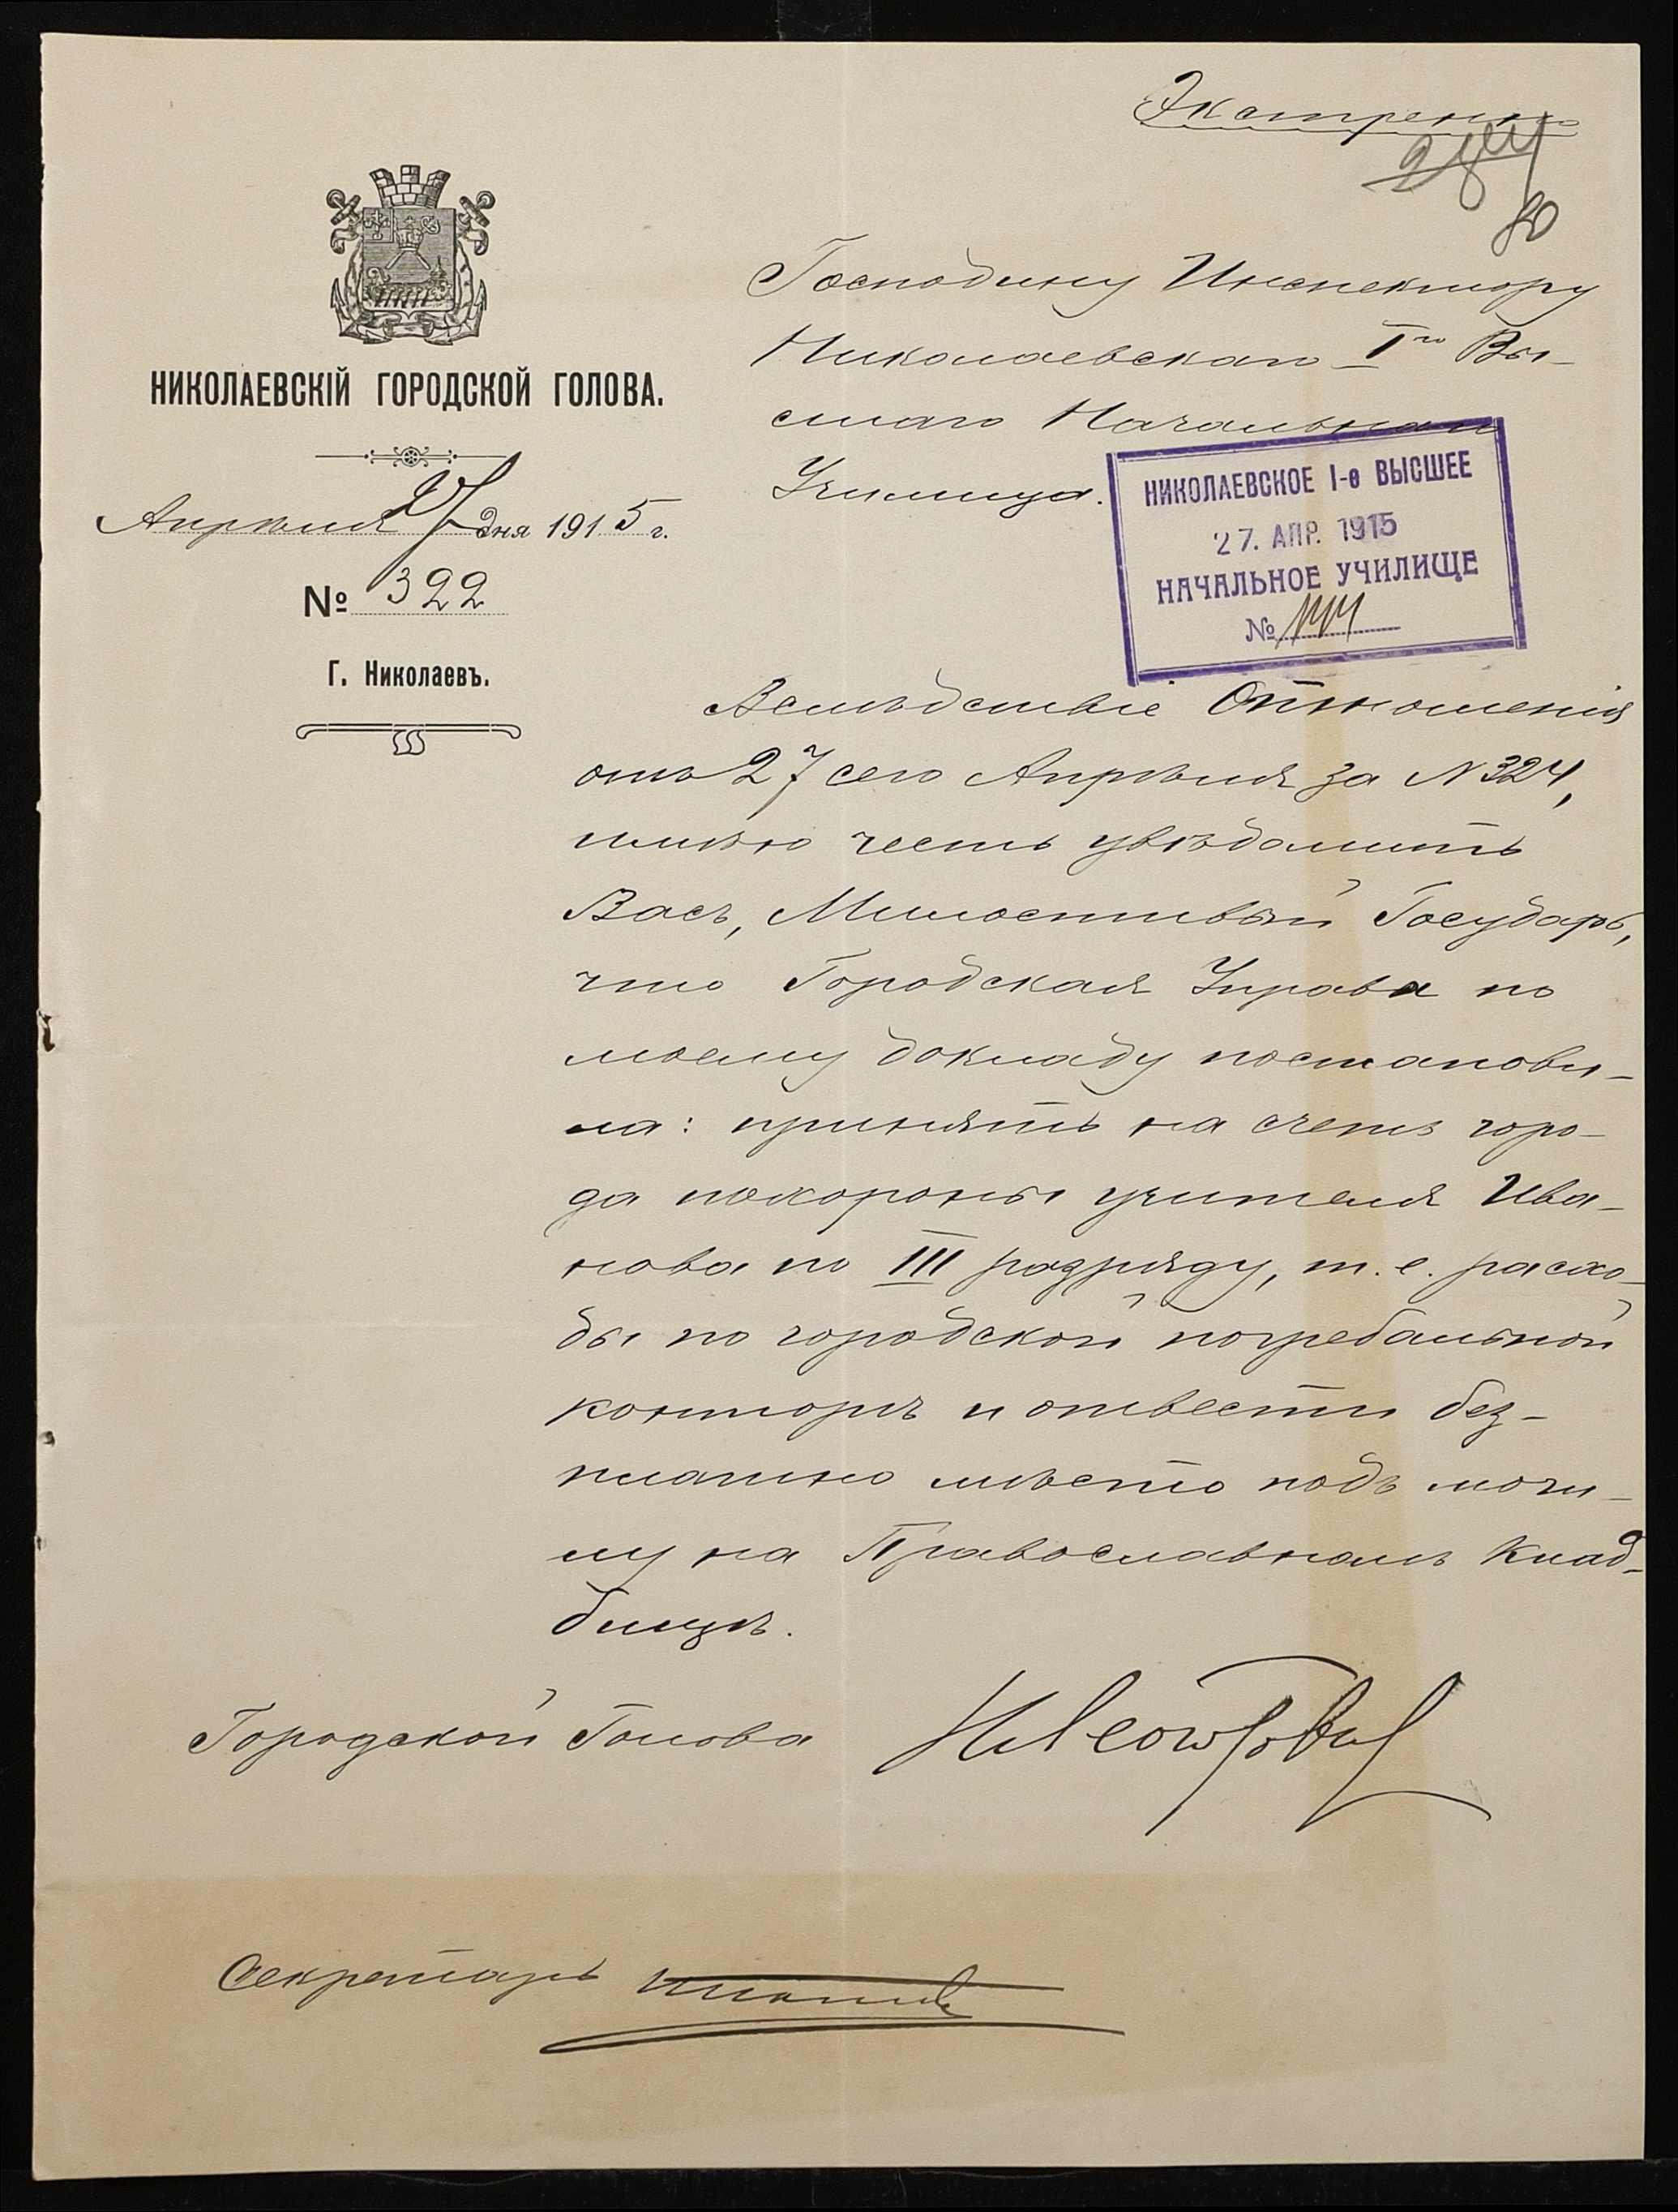 Экстренно
НИКОЛАЕВСКІЙ ГОРОДСКОЙ ГОЛОВА.
Апрѣля 27 дня 1915 г.
№ 322
Г. Николаевъ.
Господину Инспектору
Николаевскаго Iго Вы-
сшаго Начальнаго
Училища.
НИКОЛАЕВСКОЕ I-е ВЫСШЕЕ
27. АПР. 1915
НАЧАЛЬНОЕ УЧИЛИЩЕ
№
Вслѣдствіе Отношенія
отъ 27 сего Апрѣля за N 324,
имѣю честь увѣдомить
Васъ, Милостивый Государь,
что Городская Управа по
моему докладу постанови-
ла: принять на счетъ горо-
да похороны учителя Ива-
нова по III разряду, т. е. расхо-
ды по городской погребальной
конторѣ и отвести без-
платно мѣсто подъ моги-
лу на Православномъ Клад-
бищѣ.
Городской Голова
Секретарь